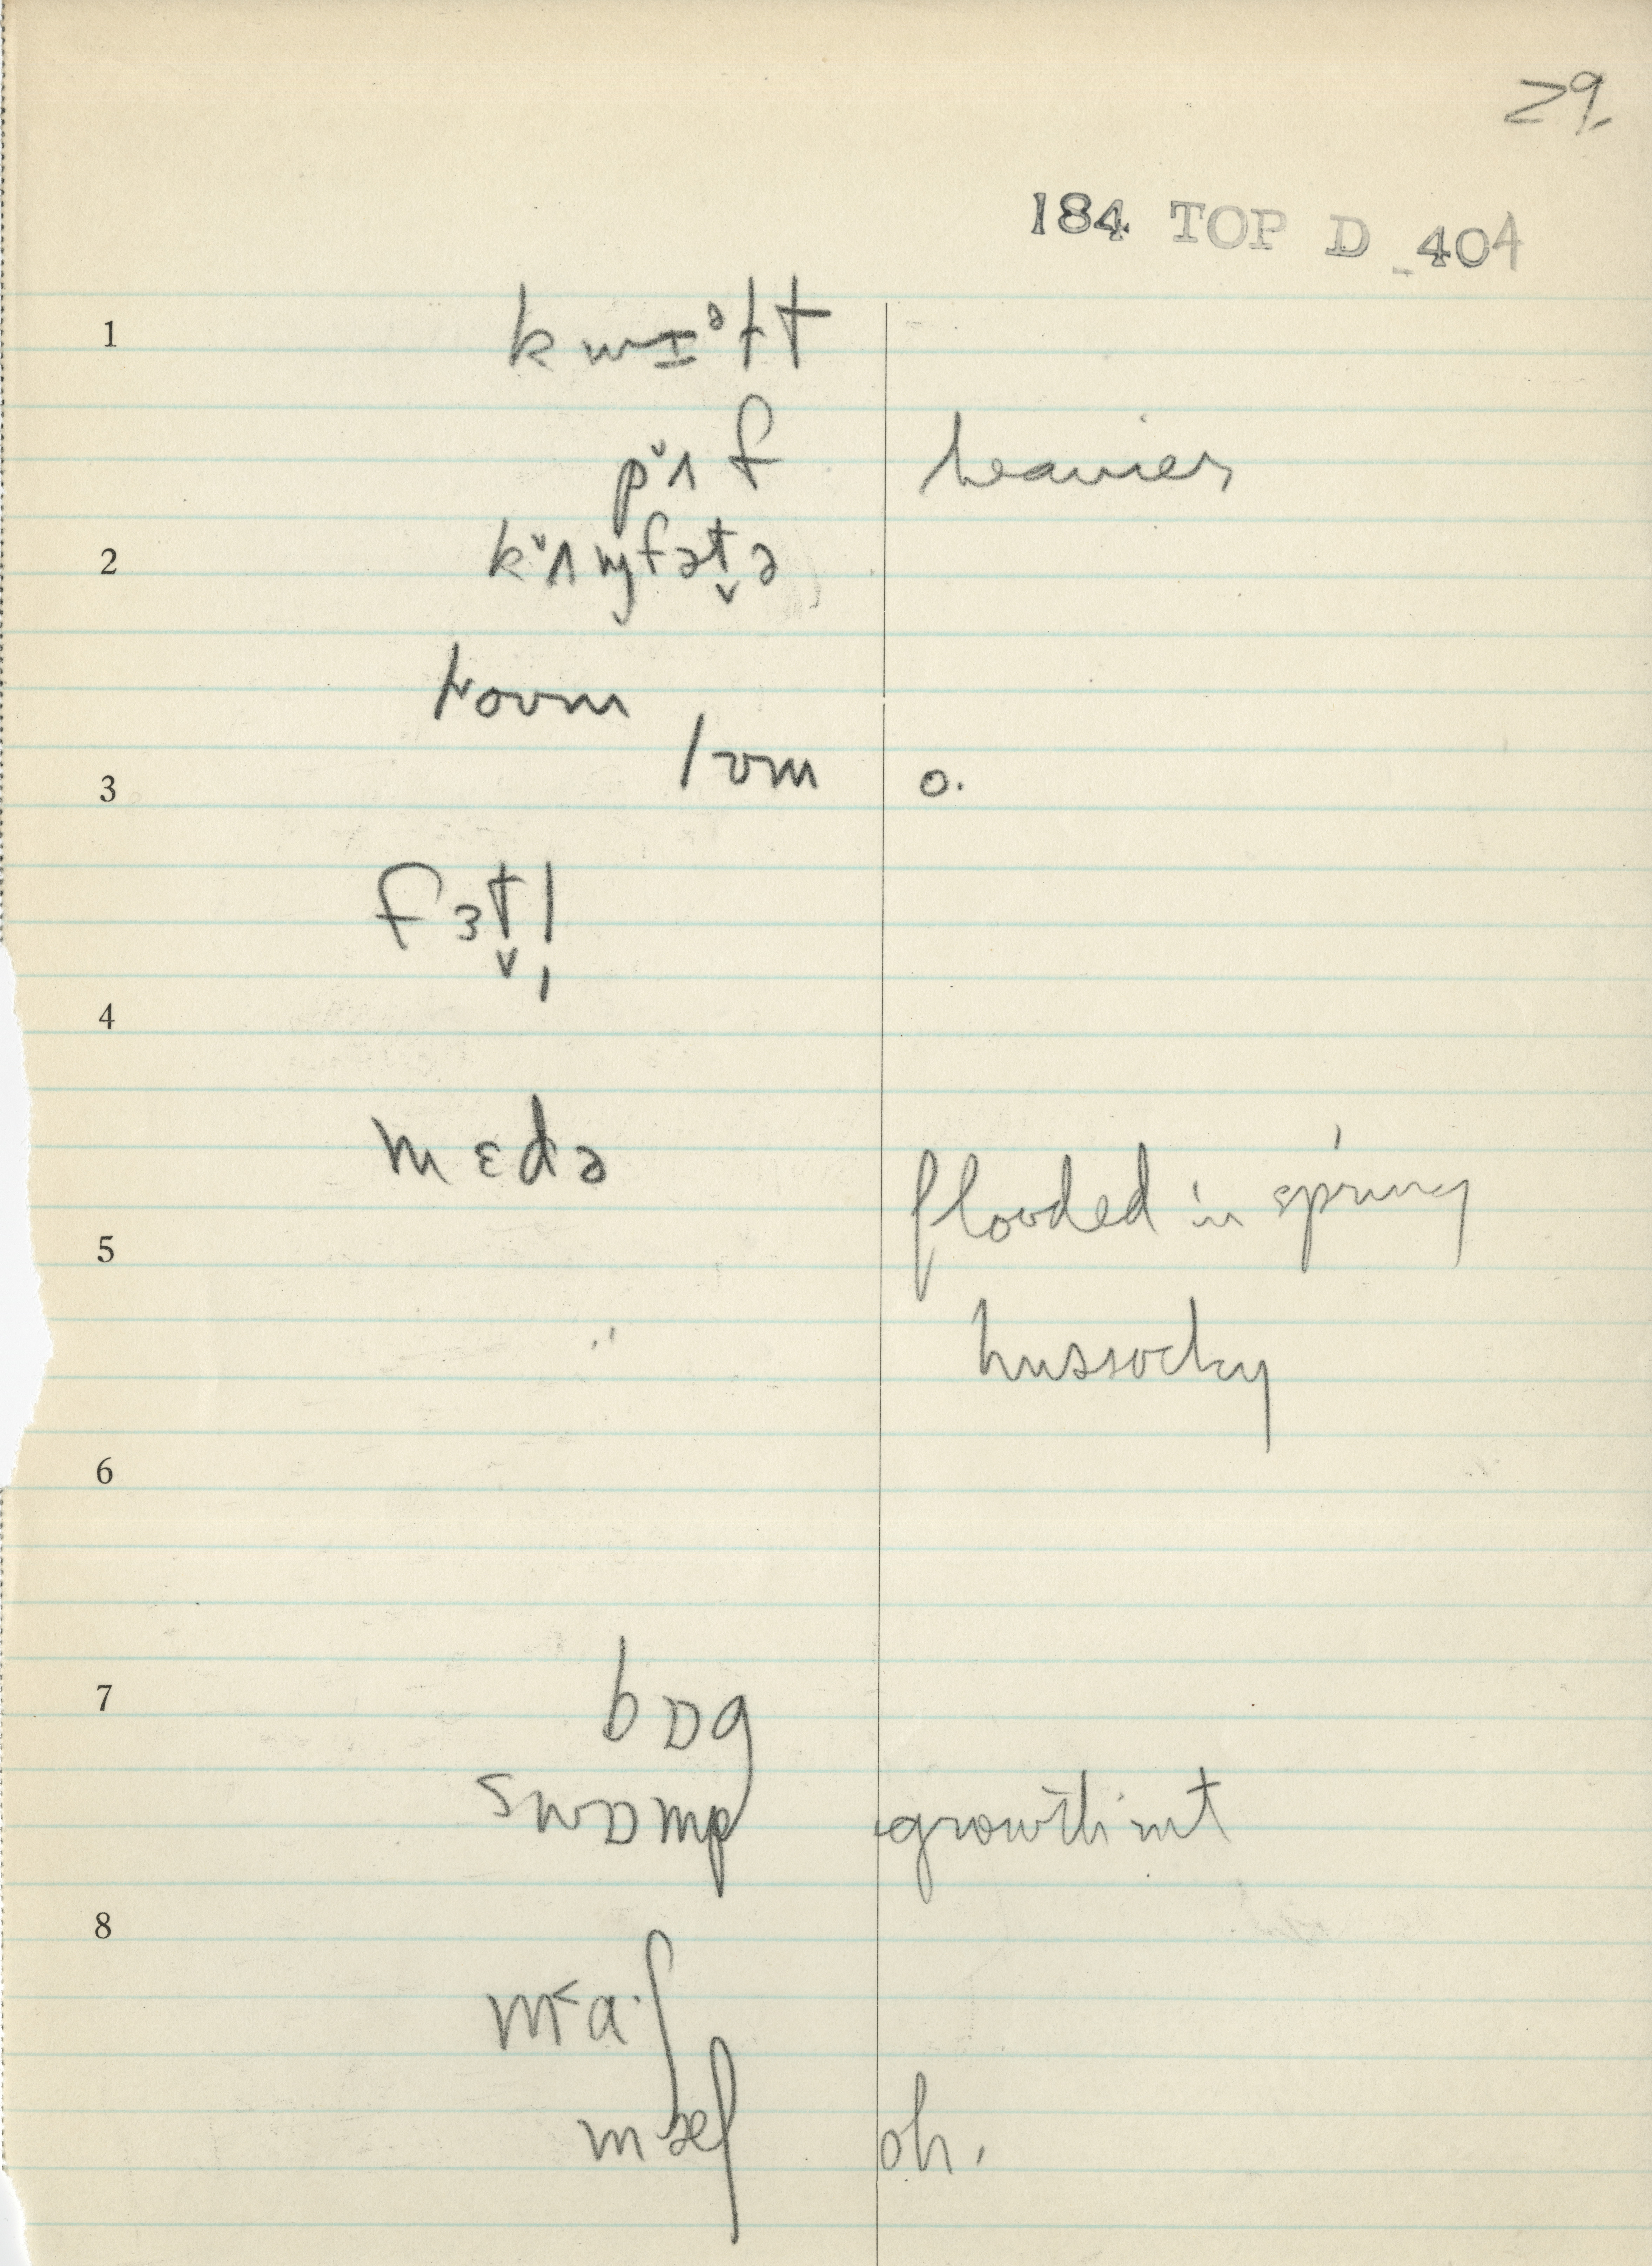 29.
184 TOP D 404
1 kwɪᵊɫt
pˇʌf heavier
2 kˇʌɱfət̬ə
3 /ʊm o.
fɜt̬l̩
4
mɛdə
5 flooded in spring
hussocky
6
7 bɒg
swɒmp growth in it
8
m˂a·ʃ
mæʃ oh.